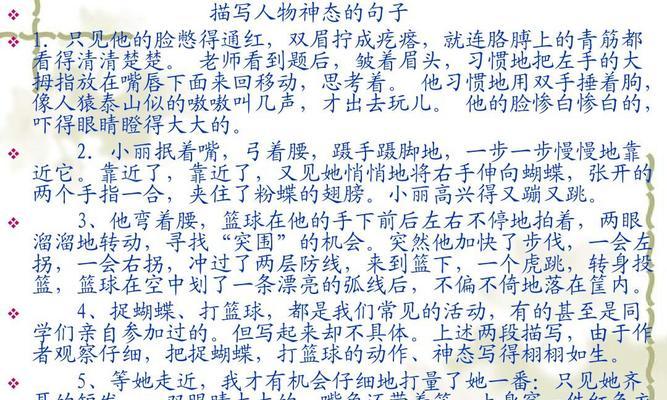 描写人物神态的句子
1．只见他的脸憋得通红，双眉拧成疙瘩，就连胳膊上的青筋都
看得清清楚楚。 老师看到题后，皱着眉头，习惯地把左手的大
拇指放在嘴唇下面来回移动，思考着。 他习惯地用双手捶着胸，
像人猿泰山似的嗷嗷叫几声，才出去玩儿。 他的脸惨白惨白的，
吓得眼睛瞪得大大的。
2．小丽抿着嘴，弓着腰，蹑手蹑脚地，一步一步慢慢地靠
近它。靠近了，靠近了，又见她悄悄地将右手伸向蝴蝶，张开的
两个手指一合，夹住了粉蝶的翅膀。小丽高兴得又蹦又跳。
3、他弯着腰，篮球在他的手下前后左右不停地拍着，两眼
溜溜地转动，寻找“突围”的机会。突然他加快了步伐，一会左
拐，一会右拐，冲过了两层防线，来到篮下，一个虎跳，转身投
篮，篮球在空中划了一条漂亮的弧线后，不偏不倚地落在筐内。
4、捉蝴蝶、打篮球，都是我们常见的活动，有的甚至是同
学们亲自参加过的。但写起来却不具体。上述两段描写，由于作
者观察仔细，把捉蝴蝶、打篮球的动作、神态写得栩栩如生。
5、等她走近，我才有机会仔细地打量了她一番：只见她齐
耳的短发，一双眼睛大大的，嘴角还带着笑，上身穿一件红色夹